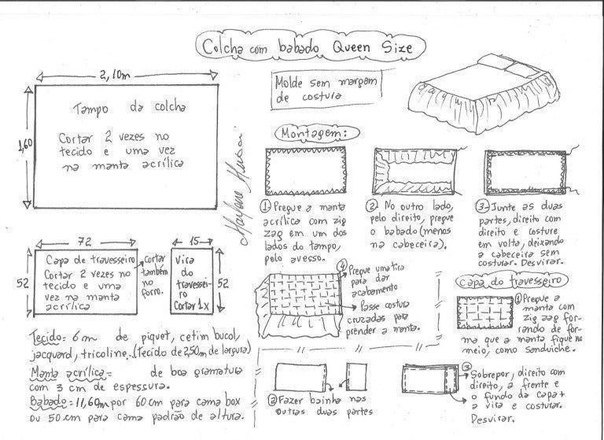 Colcha com babado Queen Size
2,10m
1,60
Tampo da colcha
Cortar 2 vezes no
tecido e uma vez
na manta acrílica
Molde sem margem
de costura
Montagem:
① Pregue a manta
acrílica com zig
zag em um dos
lados do tampo,
pelo avesso.
② No outro lado,
pelo direito, pregue
o babado (menos
na cabeceira).
③- Junte as duas
partes, direito com
direito e costure
em volta, deixando
a cabeceira sem
costurar. Desvirar.
72
52
Capa de travesseiro
Cortar 2 vezes no
tecido e uma
vez na manta
acrílica
cortar
também
no
forro.
15
52
Vira
do
travessei
ro
Cortar 1x
④ Pregue uma tira
para dar
acabamento
Passe costura
cruzadas para
prender a manta.
Capa do travesseiro
① Pregue a
manta com
zig zag for
rando de for
ma que a manta fique no
meio, como sanduiche.
② Fazer bainha nas
outras duas partes
③ Sobrepor, direito com
direito, a frente e
o fundo da capa +
a vira e costurar.
Desvirar.
Tecido = 6m de piquet, cetim bucol,
jacquard, tricoline. (Tecido de 2,50m de largura)
Manta acrílica = de boa gramatura
com 3 cm de espessura.
Babado = 11,60m por 60 cm para cama box
ou 50 cm para cama padrão de altura.